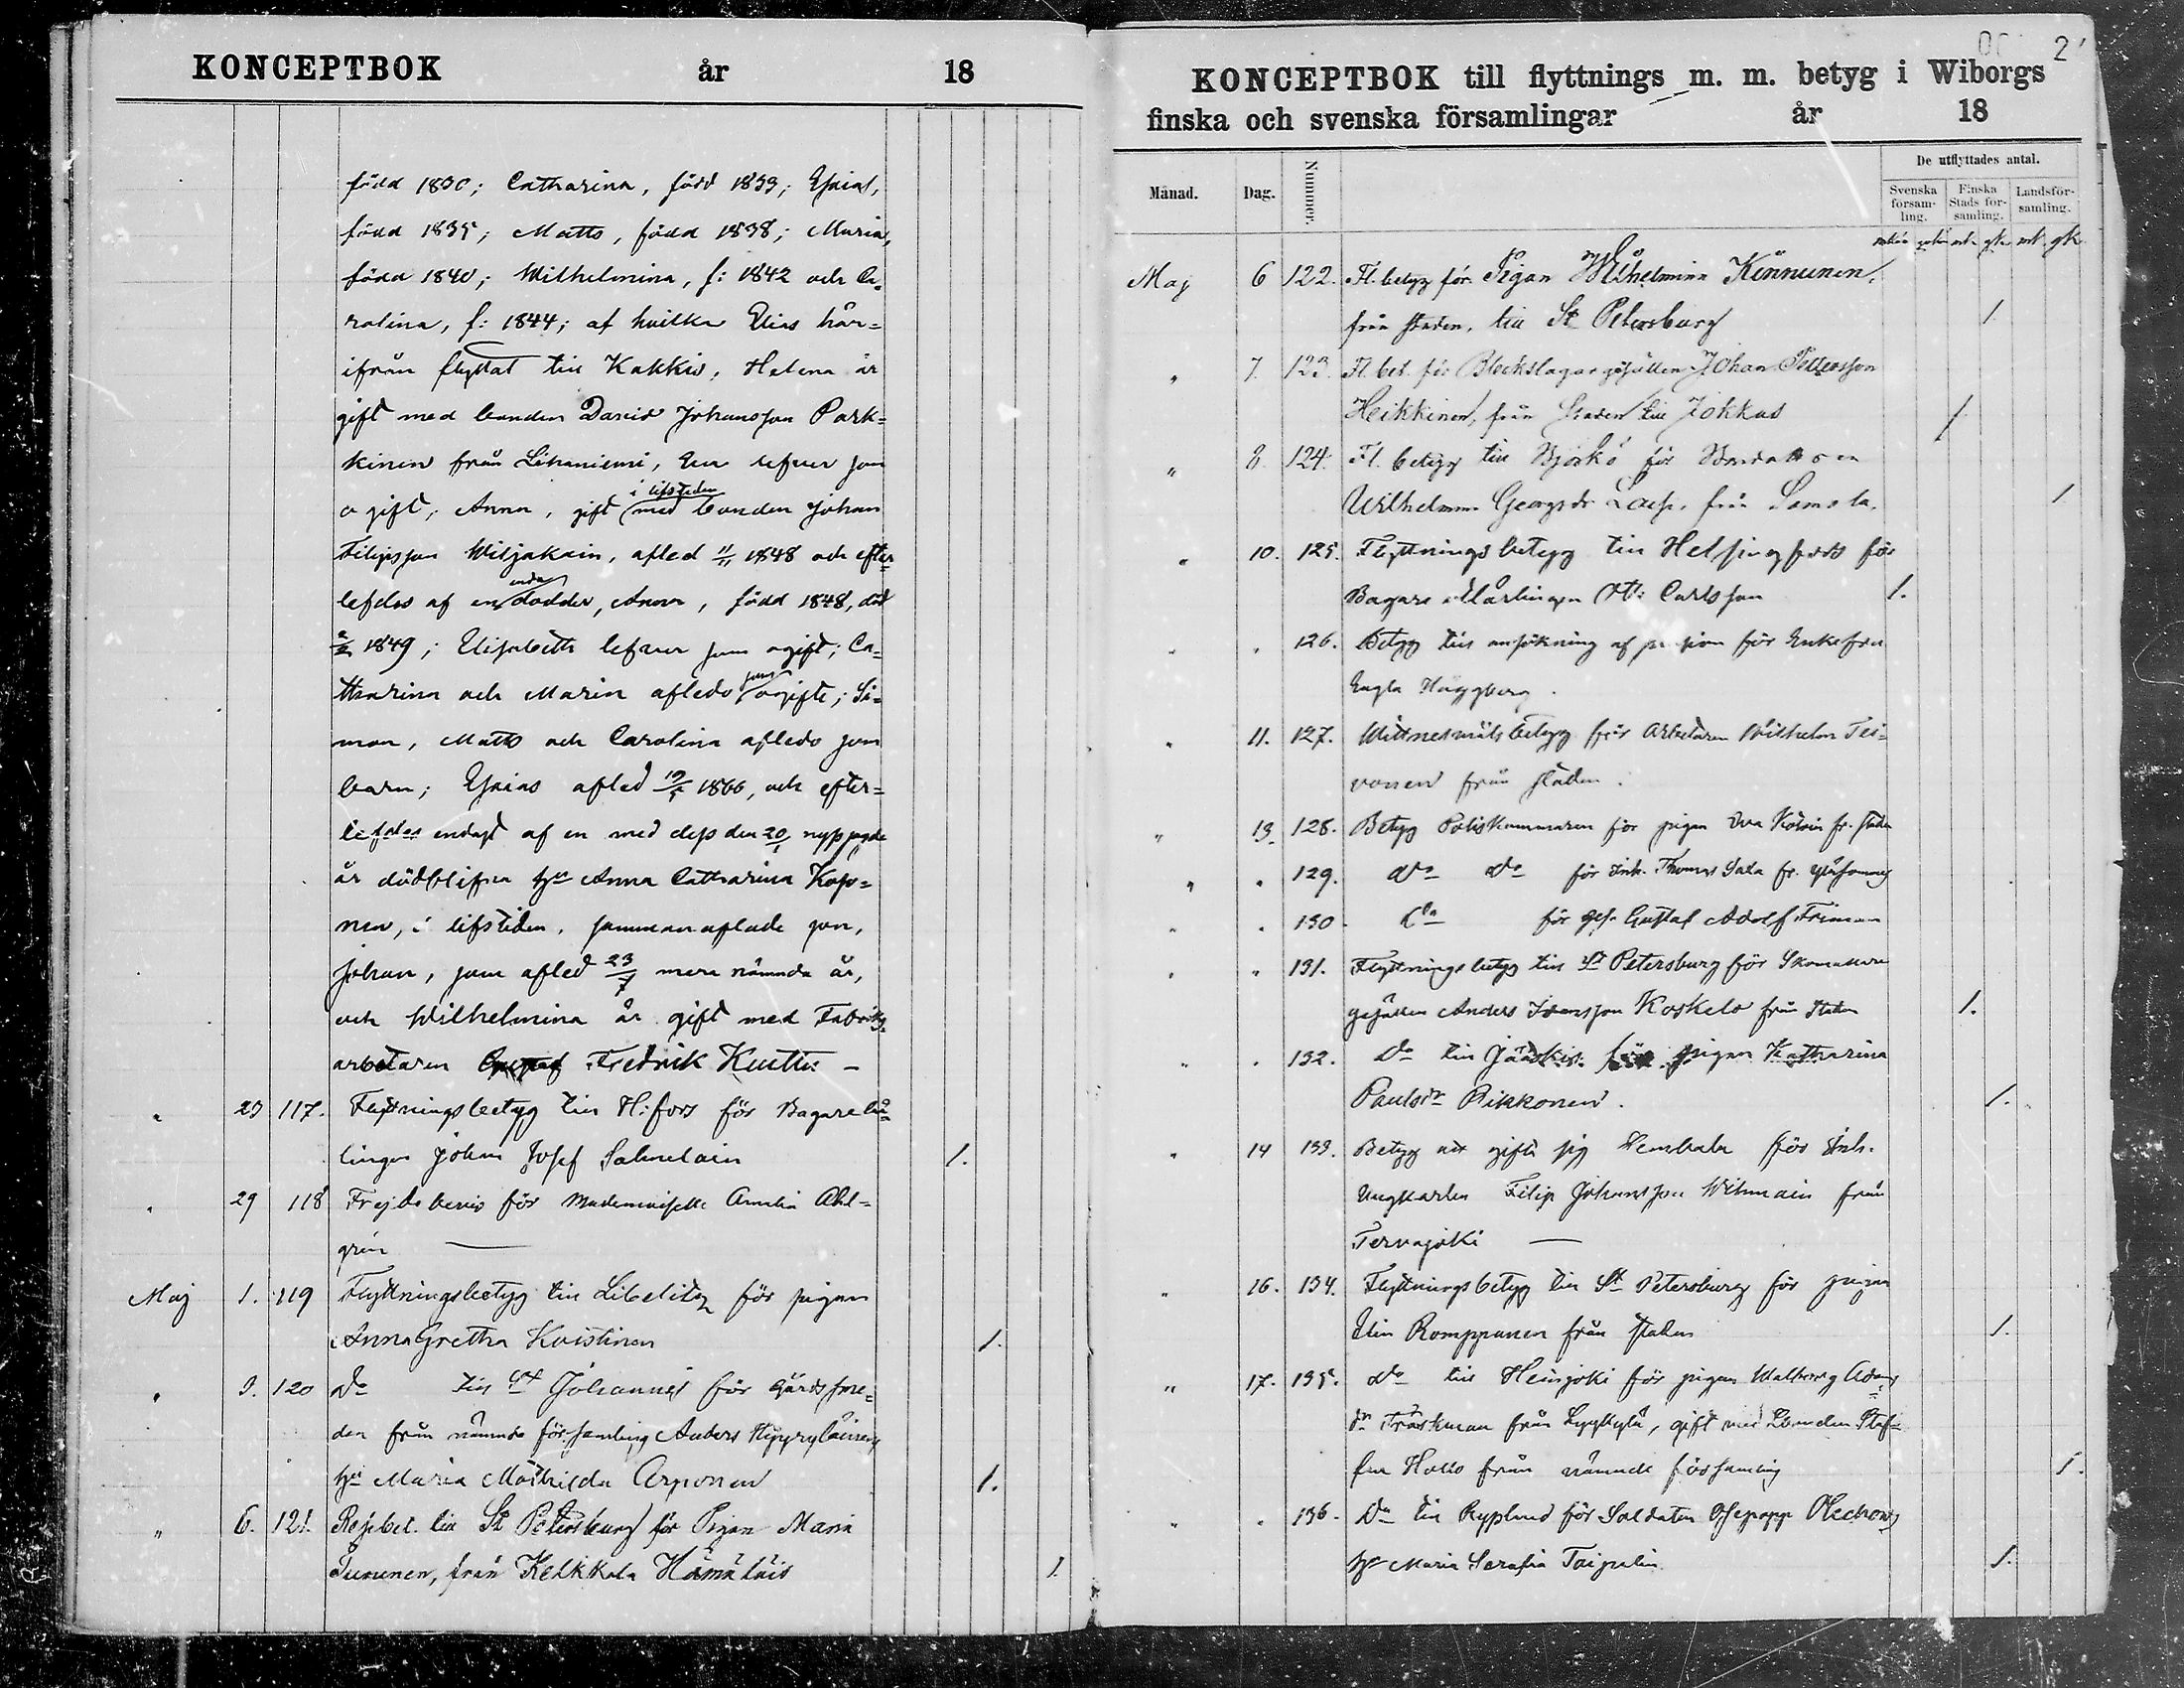 KONCEPTBOK år 18
född 1830; Catharina, född 1833; Esaias,
född 1835; Matts, född 1838; Maria,
född 1840; Wilhelmina, f: 1842 och Ca-
rolina, f: 1844; af hvilka Elias här=
ifrån flyttat till Kakkis, Helena är
gift med bonden David Johansson Park=
kinen från Lihaniemi, Eva lefver som
ogift; Anna, gift i lifstiden med bonden Johan
Filipsson Wiljakain, afled 11/11 1848 och efter=
lefdes af en enda dotter, Anna, född 1848, död
1849; Elisabeth lefver som ogift; Ca=
tharina och Maria afledo som ogifta; Si=
mon, Matts och Carolina afledo som
barn; Esaias afled 19/5 1866, och efter=
lefdes endast af en med dess den 20/1 nyss sagde
år dödblifna h:u Anna Catharina Kop=
nen, i lifstiden, sammanaflade son,
Johan, som afled 23/7 mera nämnda år,
och Wilhelmina är gift med Fabriks
arbetaren Fredrik Kutti —
" 23 117. Flyttningsbetyg till H:fors för Bagarelär=
lingen Johan Josef Salmelain 1.
" 29 118 Frejdebevis för Mademoiselle Amelia Ahl=
grén —
Maj 1. 119 Flyttningsbetyg till Libelitz för pigan
Anna Gretha Kvistinen 1.
" 3. 120 D:o till S:t Johannes för Gårds
den från nämnda församling Anders Kyyryläinens
h:u Maria Mathilda Arponen 1.
" 6. 121. Resebet. till St Petersburg för Pigan Maria
Turunen, från Kelkkala Hämäläis 1
KONCEPTBOK till flyttnings m. m. betyg i Wiborgs
finska och svenska församlingar år 18
2
Månad. Dag. Nummer. De utflyttades antal.
Svenska församling. Finska Stads församling. Landsförsamling.
mk gk mk gk
Maj 6 122. Fl. betyg för Pigan Wilhelmina Kinnunen,
från staden, till St Petersburg 1
" 7. 123. Fl. bet. för Bleckslagargesällen Johan Pettersson
Heikkinen, från Staden till Jokkas 1
" 8. 124. Fl. betyg till Björkö för Bondattern
Wilhelmina Georgsdr från Samola. 1
" 10. 125. Flyttningsbetyg till Helsingfors för
Bagare Carlsson 1.
" " 126. Betyg till ansökning af pension för Enkefru
Engla Häggberg.
" 11. 127. Wittnesmåls betyg för arbetaren Wilhelm Tei=
vonen från staden.
" 13. 128. Betyg Poliskammaren för pigan Eva fr. staden
" " 129. D:o D:o för Inh. Thomas Sala fr.
" " 130. D:o för ges. Gustaf Adolf Friman
" " 131. Flyttningsbetyg till S:t Petersburg för Skomakare
gesällen Anders Johansson Koskelo från Staden 1.
" " 132. D:o till Jääskis för pigan Katharina
Paulsd:r Pikkonen. 1.
" 14 133. Betyg att gifta sig för Inh.
Ungkarlen Filip Johansson Wihmain från
Tervajoki —
" 16. 134. Flyttningsbetyg till S:t Petersburg för pigan
Elin Romppanen från staden 1.
" 17. 135. D:o till Heinjoki för pigan Walborg Adams
d:r Träskman från Lyykylä, gift med Bonden Staf=
fan Hollo från nämnde församling 1.
" " 136. D:o till Ryssland för Soldaten Olechows
h:u Maria Serafia Taipalin 1.